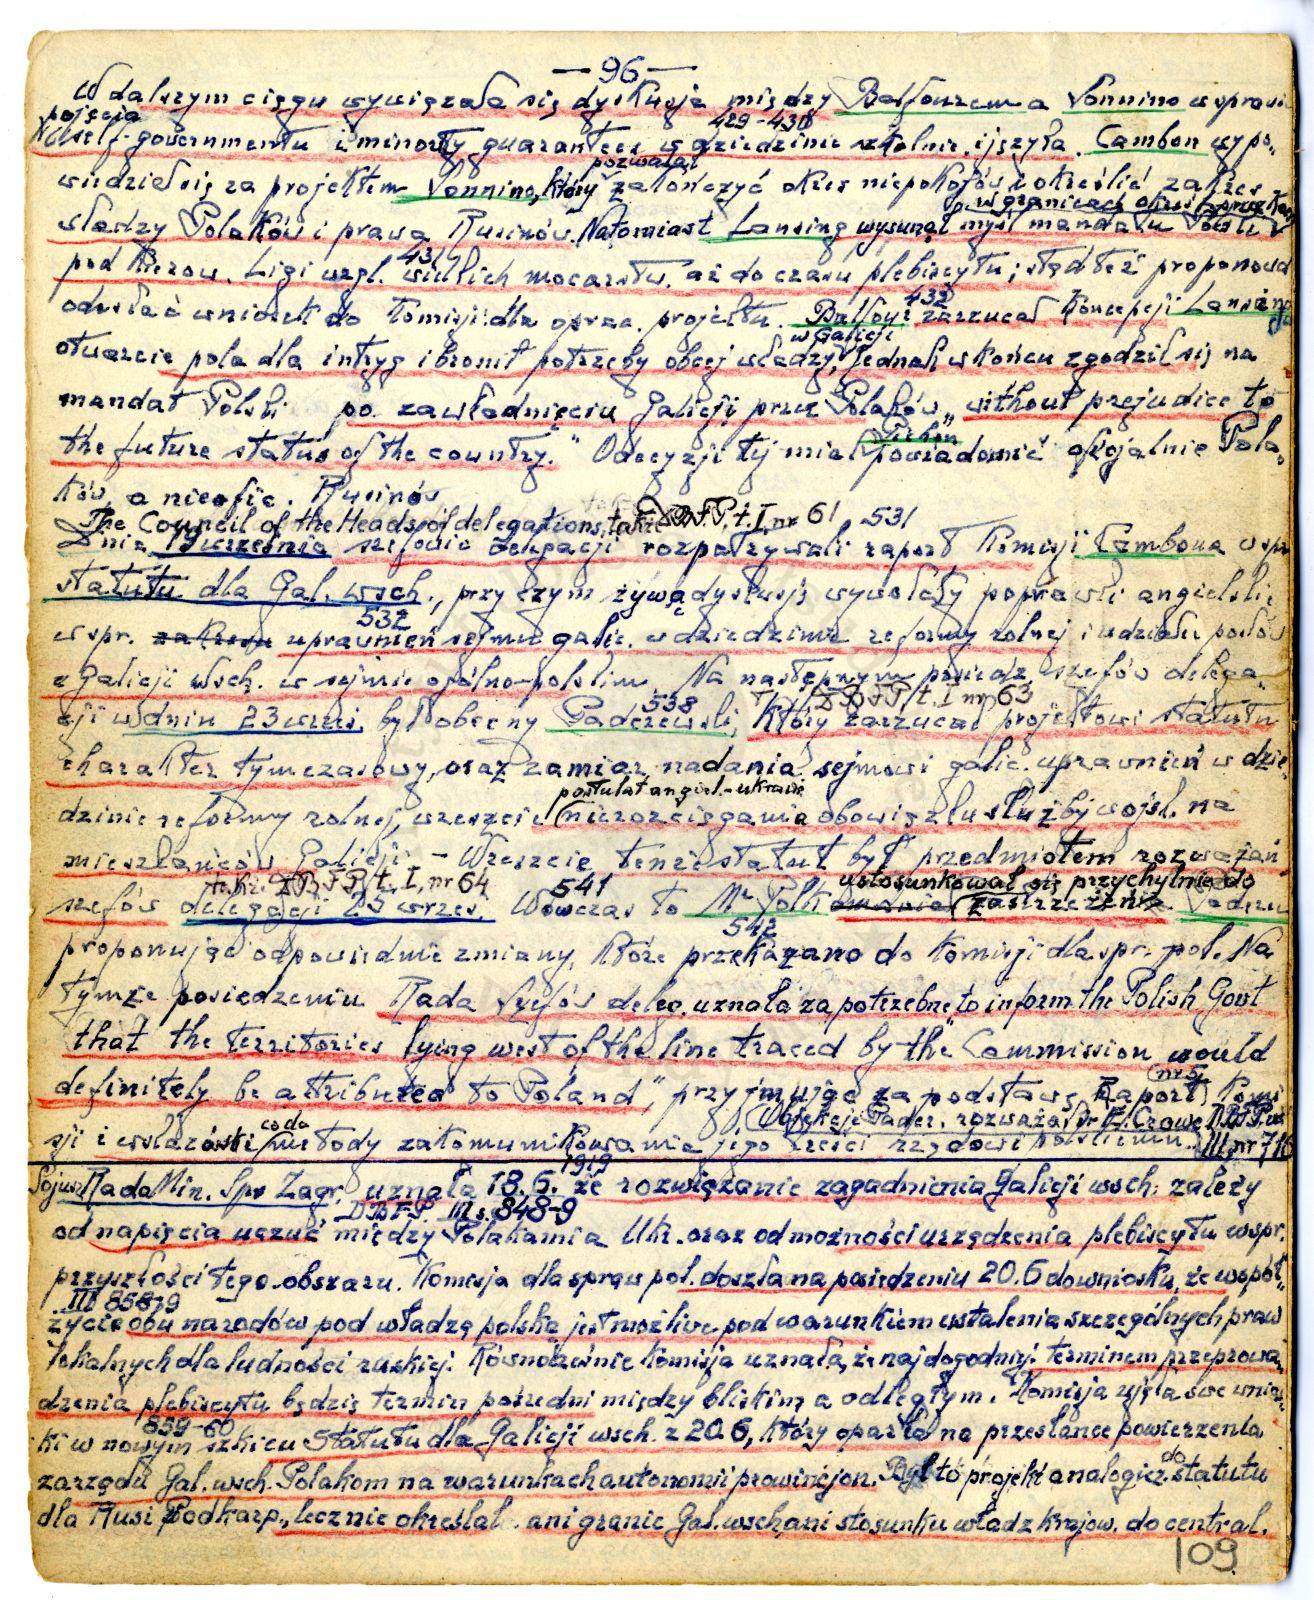 — 96 —
W dalszym ciągu wywiązała się dyskusja między Balfourem a Sonnino w sprawie
pojęcia
self-governmentu i minority guarantees w dziedzinie szkolnic. i języka. Cambon wypo-
429-430
wiedział się za projektem Sonnino, który zakończyć okres niepokojów i określić zakres
pozwalał
władzy Polaków i prawa Rusinów. Natomiast Lansing wysunął myśl mandatu Polski
w granicach
pod kierow. Ligi wzgl. wielkich mocarstw. aż do czasu plebiscytu; stąd też proponował
431
odesłać wniosek do Komisji dla oprac. projektu. Balfour zarzucał koncepcji Lansinga
432
otwarcie pola dla intryg i bronił potrzeby obcej władzy, jednak w końcu zgodził się na
w Galicji
mandat Polski po zawładnięciu Galicji przez Polaków „without prejudice to
the future status of the country." O decyzji tej miał powiadomić oficjalnie Pola-
Pichon
ków, a nieofic. Rusinów
The Council of the Heads of delegations, także D.B.F.P. t. I, nr 61 531
Dnia 19 września szefowie delegacji rozpatrywali raport Komisji Cambona w spr.
statutu dla Gal. wsch., przy czym żywą dyskusję wywołały poprawki angielskie
532
w spr. zakresu uprawnień sejmu galic. w dziedzinie reformy rolnej i udziału posłów
z Galicji Wsch. w sejmie ogólno-polskim. Na następnym posiedz. szefów delega-
538 D.B.F.P. t. I nr 63
cji w dniu 23 wrześ. był obecny Paderewski, który zarzucał projektowi statutu
charakter tymczasowy, oraz zamiar nadania sejmowi galic. uprawnień w dzie-
postulat angiel.-ukraiń
dzinie reformy rolnej, wreszcie nierozciągania obowiązku służby wojsk. na
mieszkańców Galicji. – Wreszcie tenże statut był przedmiotem rozważań
także D.B.F.P. t. I, nr 64 541 ustosunkował się przychylnie do
szefów delegacji 25 wrześ. Wówczas to Mr Polk zastrzeżeń Paderew.
542
proponując odpowiednie zmiany, które przekazano do Komisji dla spr. pol. Na
tymże posiedzeniu Rada Szefów deleg. uznała za potrzebne „to inform the Polish Govt
that the territories lying west of the line traced by the Commission would
definitely be attributed to Poland", przyjmując za podstawę Raport Komi-
nr 5
sji i wskazówki metody zakomunikowania jego treści rządowi polskiemu.
co do
Obiekcje Pader. rozważał Dr E. Crowe D.B.F.P. III nr 716
Sojusz Rada Min. Spr Zagr. uznała 18.6. 1919 że rozwiązanie zagadnienia Galicji wsch. zależy
D.B.F.P. III s. 848-9
od napięcia uczuć między Polakami a Ukr. oraz od możności urządzenia plebiscytu w spr.
przyszłości tego obszaru. Komisja dla spraw pol. doszła na posiedzeniu 20.6 do wniosku, że współ-
III 858-9
życie obu narodów pod władzą polską jest możliwe pod warunkiem ustalenia szczególnych praw
lokalnych dla ludności ruskiej. Równocześnie Komisja uznała, że najdogodniej. terminem przeprowa-
dzenia plebiscytu będzie termin pośredni między bliskim a odległym. Komisja ujęła swe wnios-
859-60
ki w nowym szkicu Statutu dla Galicji wsch. z 20.6, który oparła na przesłance powierzenia
zarządu Gal. wsch. Polakom na warunkach autonomii prowincjon. Był to projekt analogicz. do statutu
dla Rusi Podkarp., lecz nie określał ani granic Gal. wsch. ani stosunku władz krajow. do central.
109